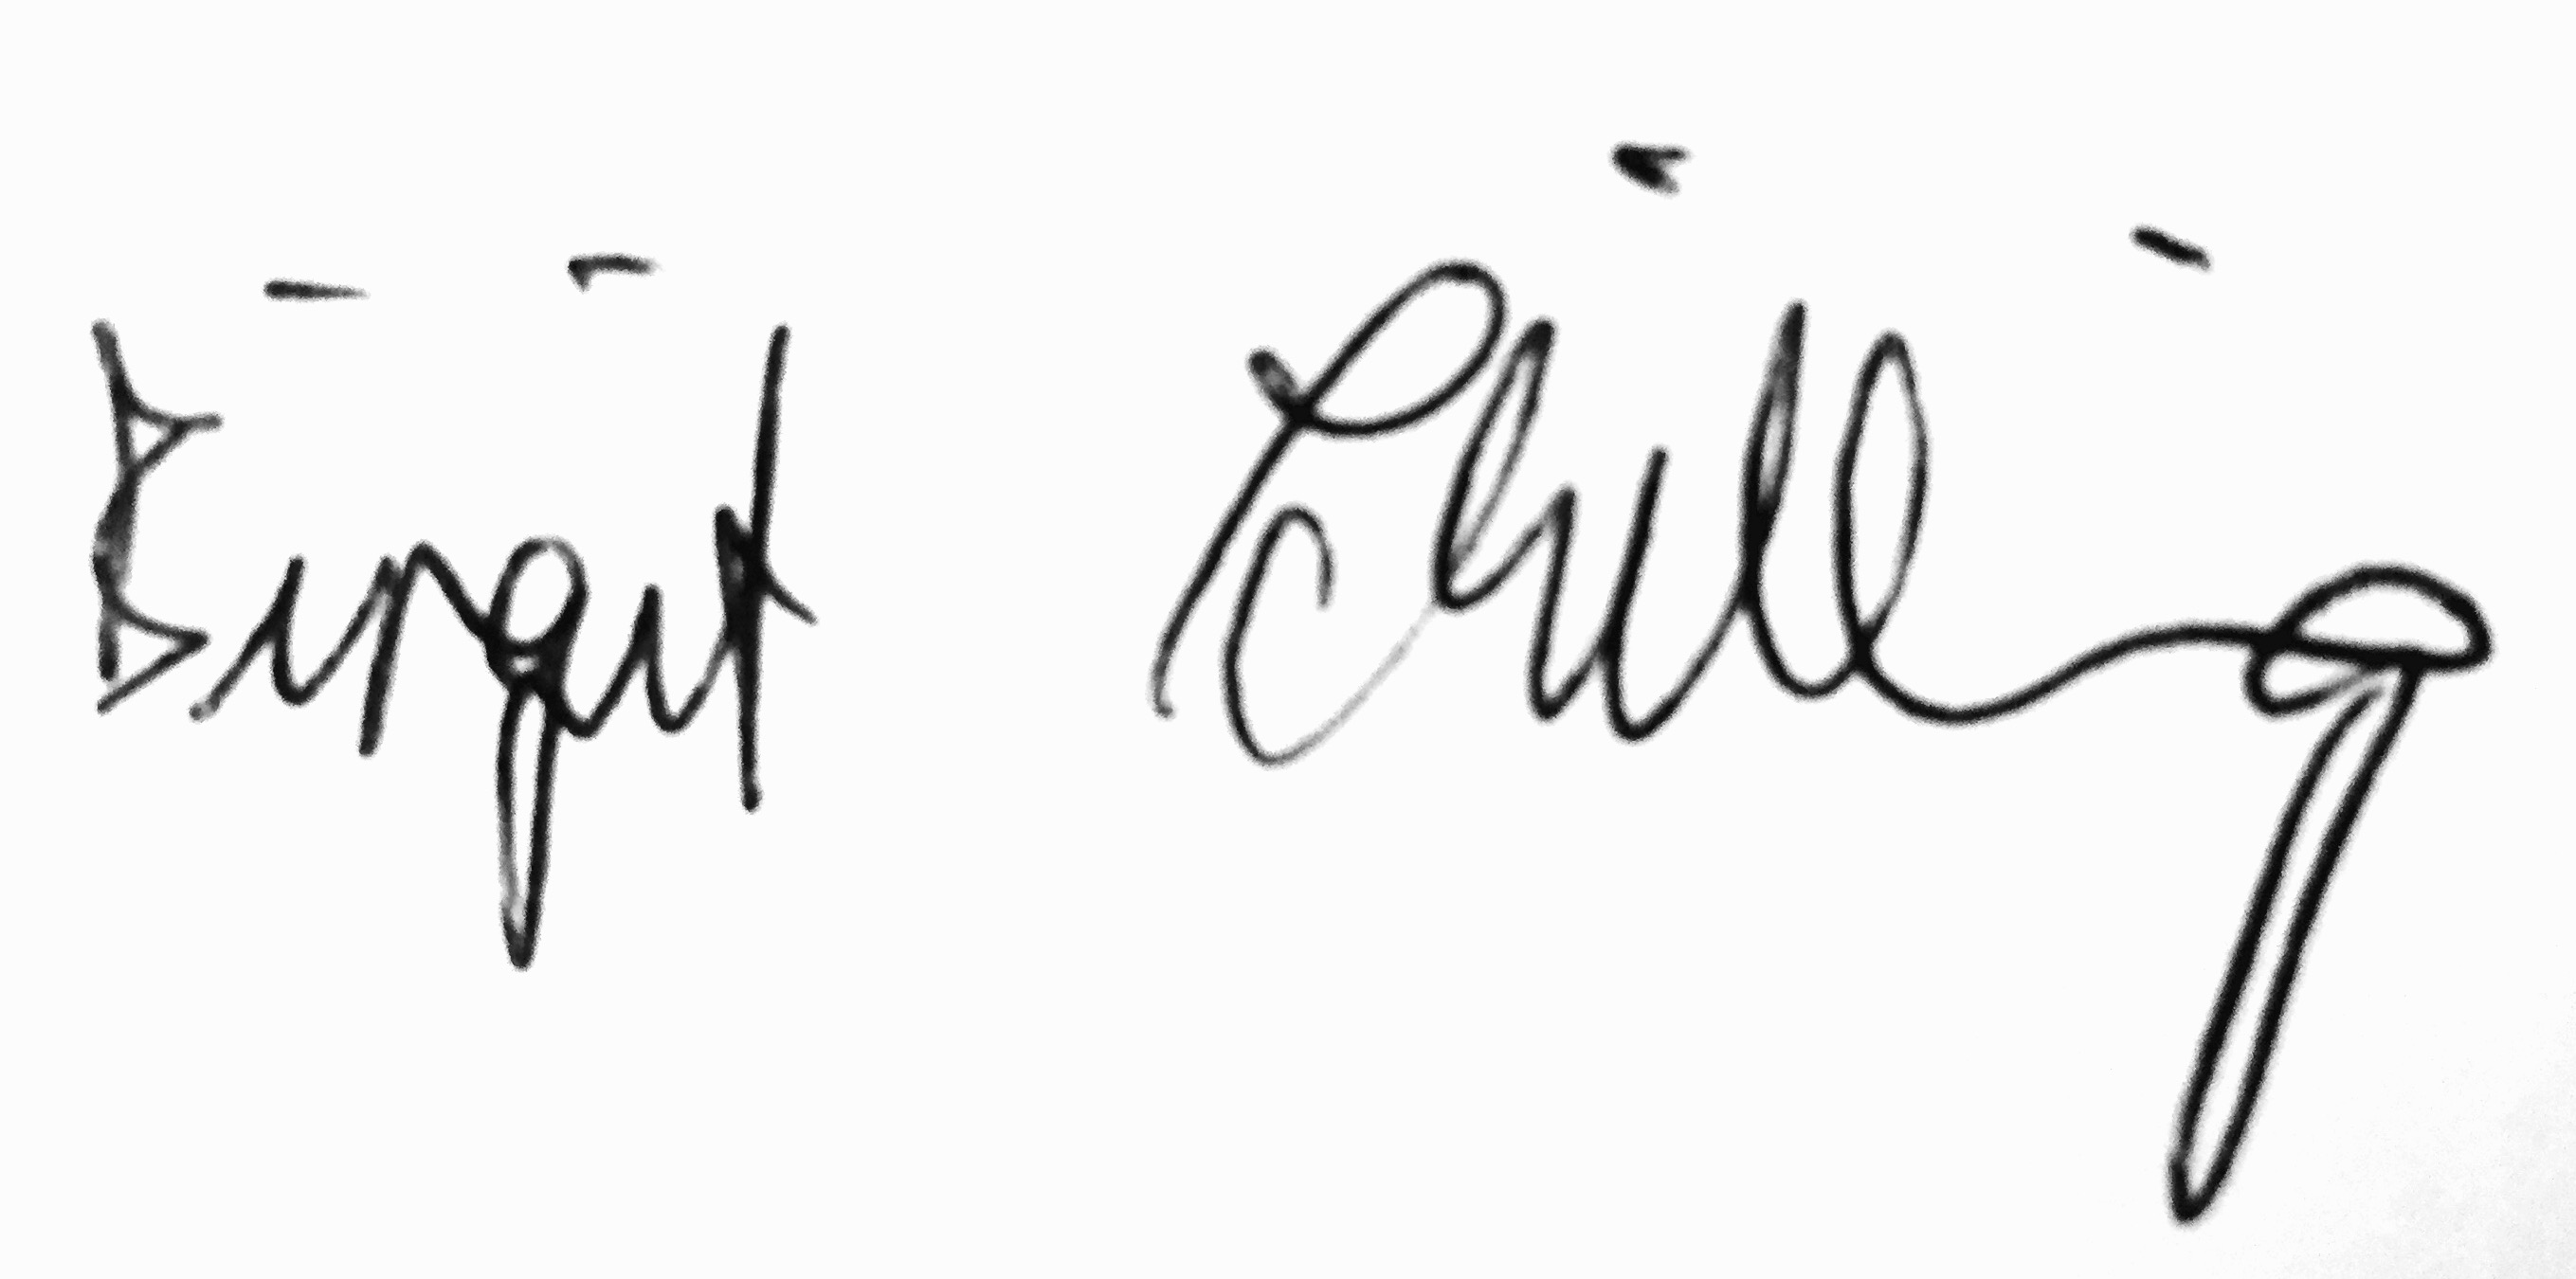 Birgit Schilling